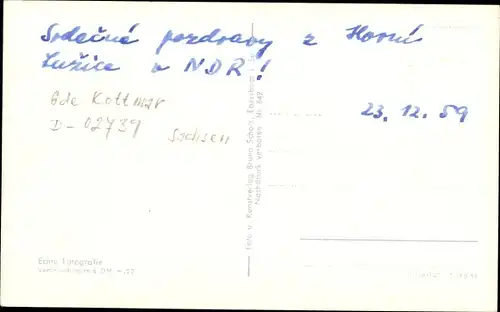 Srdečné pozdravy z Horní
Lužice v NDR!
Gde Kottmar
D-02739
Sachsen
23.12.59
Foto u. Kunstverlag Bruno Scholz,
Nachdruck verboten Nr. 642
Echte Fotografie